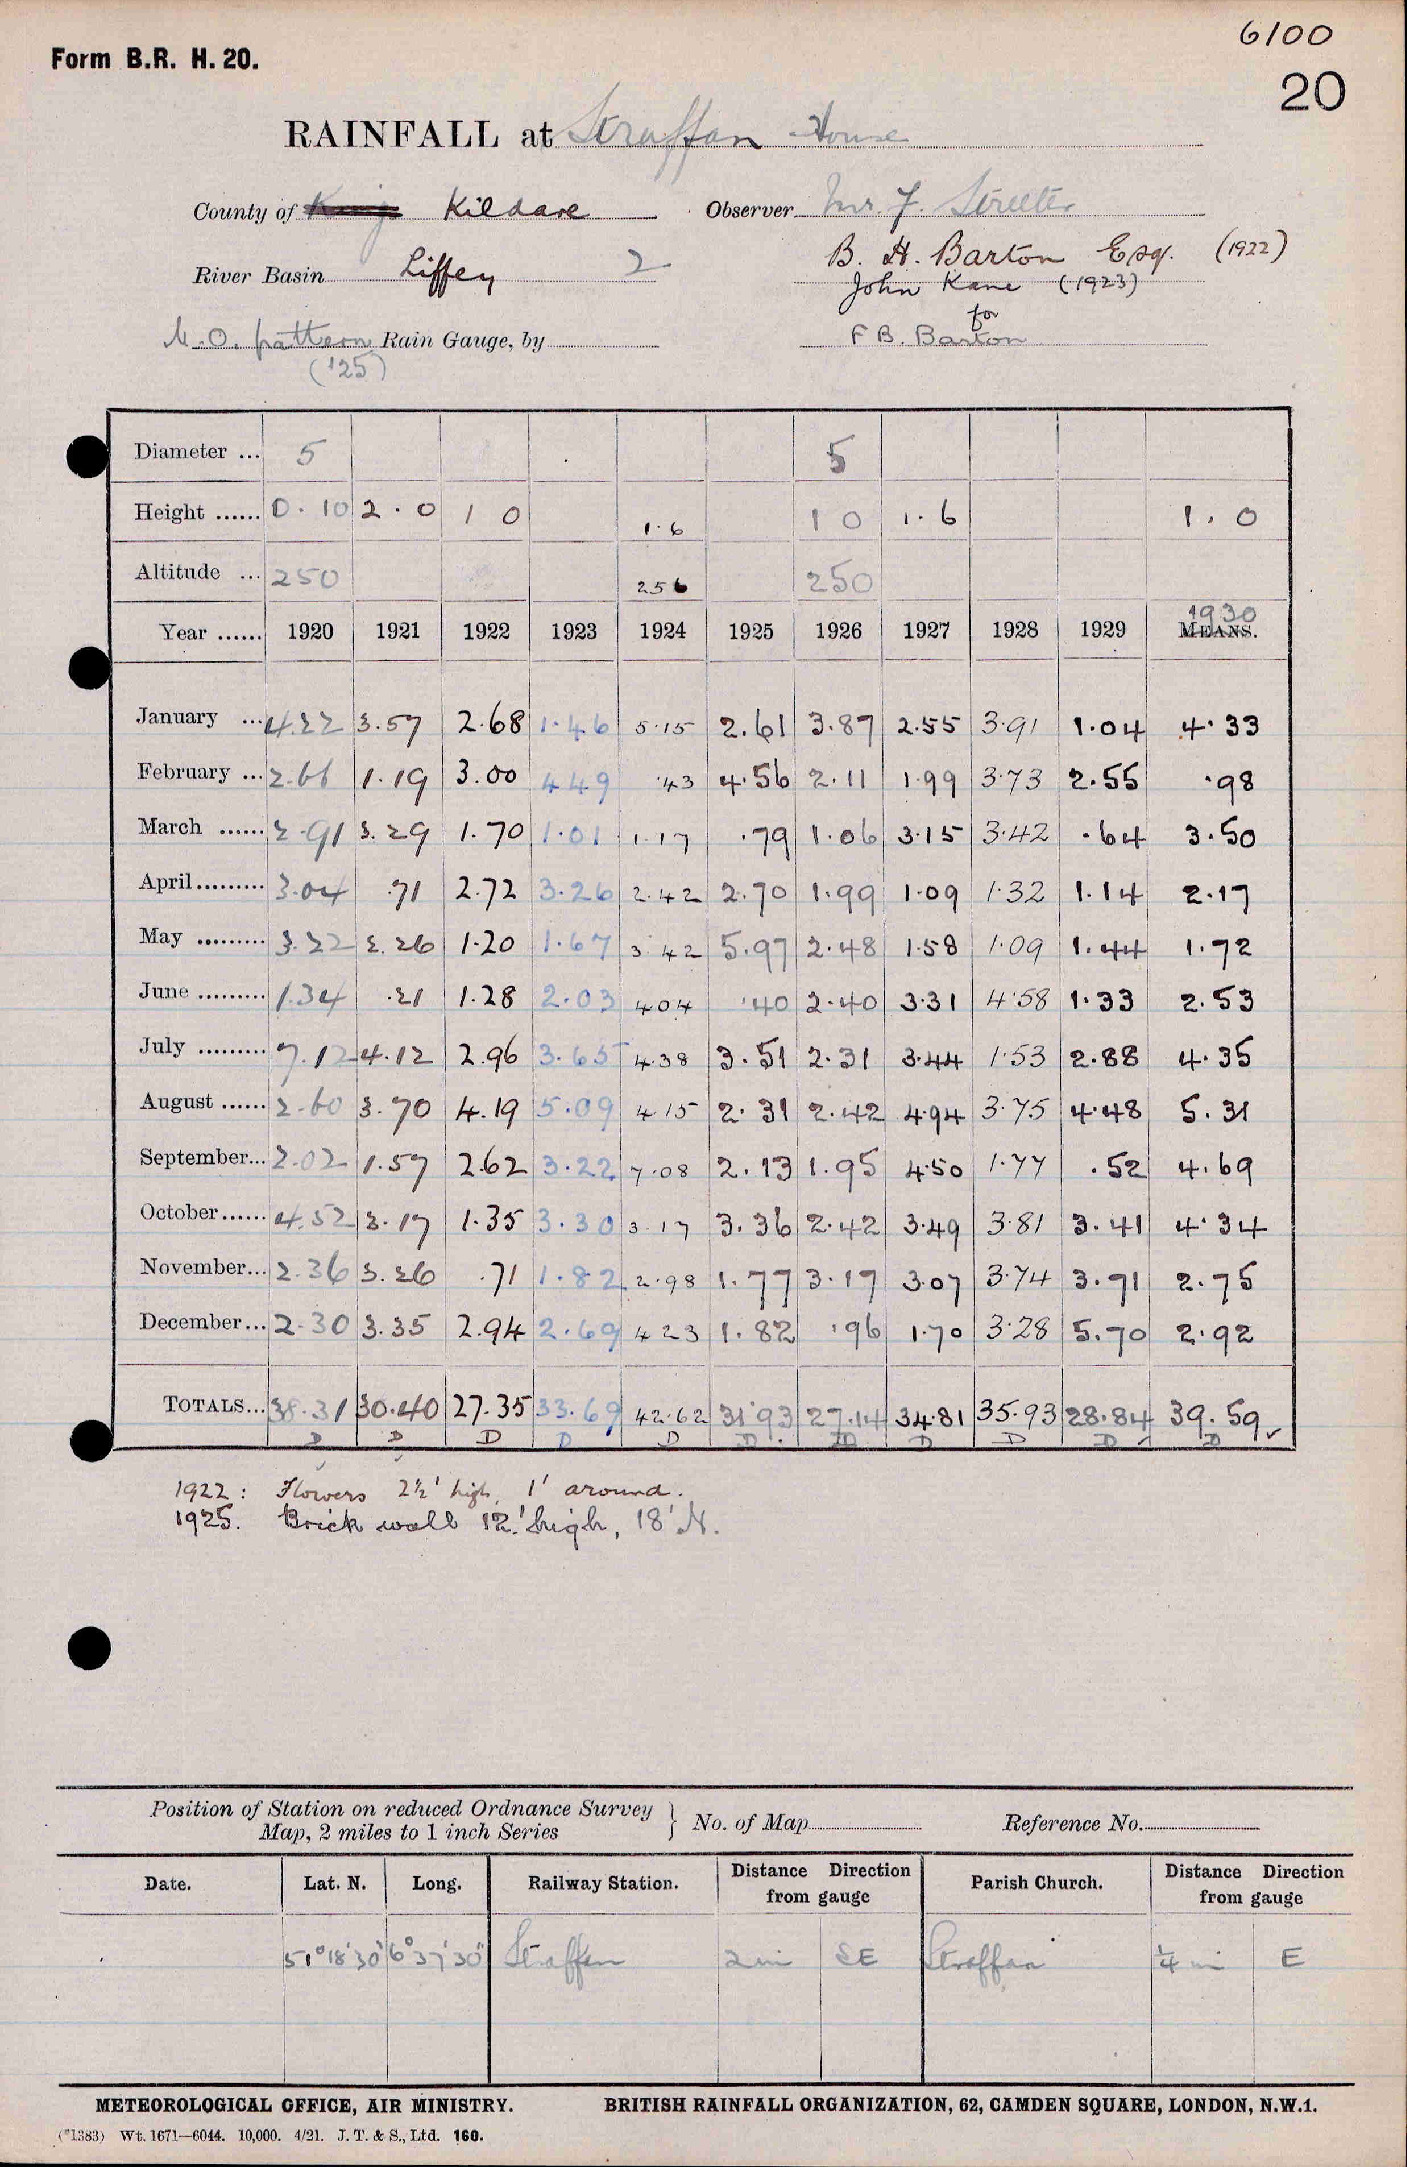 6100
Form B.R. H. 20.
20
RAINFALL at Straffan House
County of Kings Kildare Observer Mr. J. Streeter
River Basin Liffey 2 B. H. Barton Esq. (1922)
John Kane (1923)
for
M.O. pattern Rain Gauge, by F B. Barton
('25)
Diameter ... 5 5
Height ...... 0.10 2.0 1 0 1.6 1 0 1.6 1.0
Altitude ... 250 256 250
1930
Year ...... 1920 1921 1922 1923 1924 1925 1926 1927 1928 1929 MEANS.
January ... 4.22 3.57 2.68 1.46 5.15 2.61 3.87 2.55 3.91 1.04 4.33
February ... 2.66 1.19 3.00 4.49 .43 4.56 2.11 1.99 3.73 2.55 .98
March ...... 2.91 3.29 1.70 1.01 1.17 .79 1.06 3.15 3.42 .64 3.50
April ......... 3.04 .71 2.72 3.26 2.42 2.70 1.99 1.09 1.32 1.14 2.17
May ......... 3.22 2.26 1.20 1.67 3.42 5.97 2.48 1.58 1.09 1.44 1.72
June ......... 1.34 .21 1.28 2.03 4.04 .40 2.40 3.31 4.58 1.33 2.53
July ......... 7.12 4.12 2.96 3.65 4.38 3.51 2.31 3.44 1.53 2.88 4.35
August ...... 2.60 3.70 4.19 5.09 4.15 2.31 2.42 4.94 3.75 4.48 5.31
September... 2.02 1.57 2.62 3.22 7.08 2.13 1.95 4.50 1.77 .52 4.69
October...... 4.52 3.17 1.35 3.30 3.17 3.36 2.42 3.49 3.81 3.41 4.34
November... 2.36 3.26 .71 1.82 2.98 1.77 3.17 3.07 3.74 3.71 2.75
December... 2.30 3.35 2.94 2.69 4.23 1.82 .96 1.70 3.28 5.70 2.92
TOTALS... 38.31 30.40 27.35 33.69 42.62 31.93 27.14 34.81 35.93 28.84 39.59
D D D D D D D D D D D
1922: Flowers 2½' high, 1' around.
1925. Brick wall 12' high, 18' N.
Position of Station on reduced Ordnance Survey
Map, 2 miles to 1 inch Series } No. of Map Reference No.
Date. Lat. N. Long. Railway Station. Distance Direction from gauge Parish Church. Distance Direction from gauge
51° 18' 30" 6° 37' 30" Straffan 2 mi SE Straffan ¼ mi E
METEOROLOGICAL OFFICE, AIR MINISTRY. BRITISH RAINFALL ORGANIZATION, 62, CAMDEN SQUARE, LONDON, N.W.1.
(*1383) Wt. 1671—6044. 10,000. 4/21. J. T. & S., Ltd. 160.